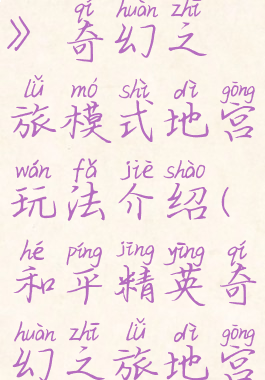 qí huàn zhī
》 奇幻之
lǚ mó shì dì gōng
旅模式地宫
wán fǎ jiè shào
玩法介绍(
hé píng jīng yīng qí
和平精英奇
huàn zhī lǚ dì gōng
幻之旅地宫